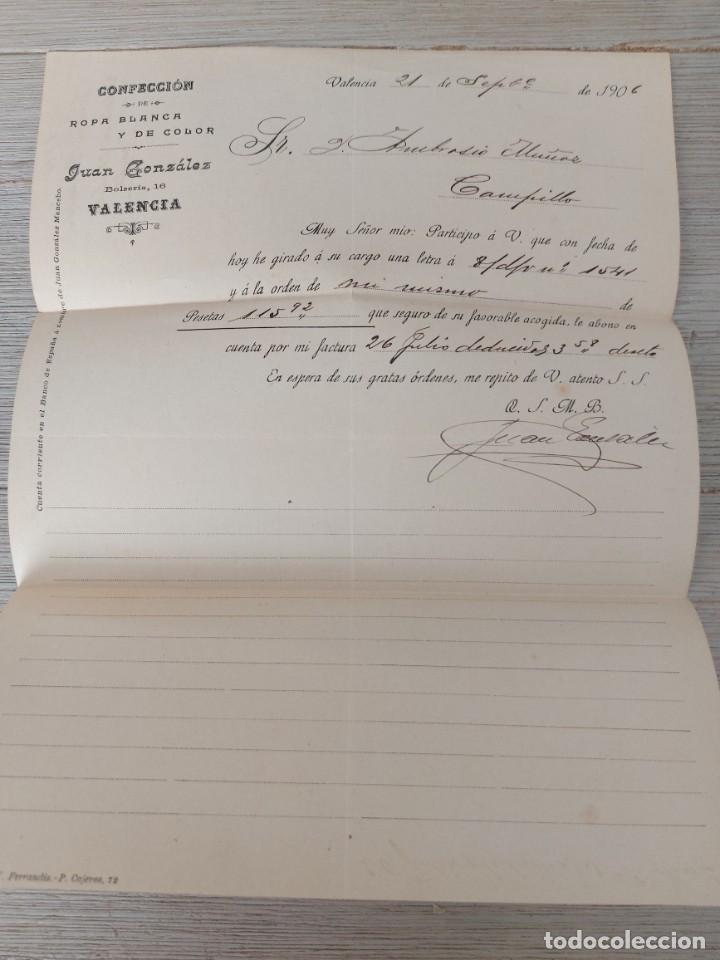 CONFECCIÓN
DE
ROPA BLANCA
Y DE COLOR
Juan González
Bolsería, 16
VALENCIA
Cuenta corriente en el Banco de España á nombre de Juan González Mancebo.
Valencia 21 de Sepbe de 1906
Sr. D. Ambrosio Muñoz
Campillo
Muy Señor mio: Participo á V. que con fecha de
hoy he girado á su cargo una letra á 8/d/v nº 1541
y á la orden de mi mismo de
Pesetas 115 92 que seguro de su favorable acogida, le abono en
cuenta por mi factura 26 Julio deducidas 3 58 descto
En espera de sus gratas órdenes, me repito de V. atento S. S.
Q. S. M. B.
Juan Gonzalez
Ferrandis.-P. Cajeros, 72
todocoleccion
todocoleccion.net